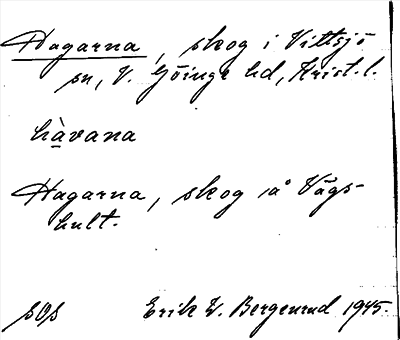 Hagarna, skog i Vittsjö
sn, V. Göinge hd, Krist. l.
hàvana
Hagarna, skog å Vågs-
hult.
Erik W. Bergenrud 1945.